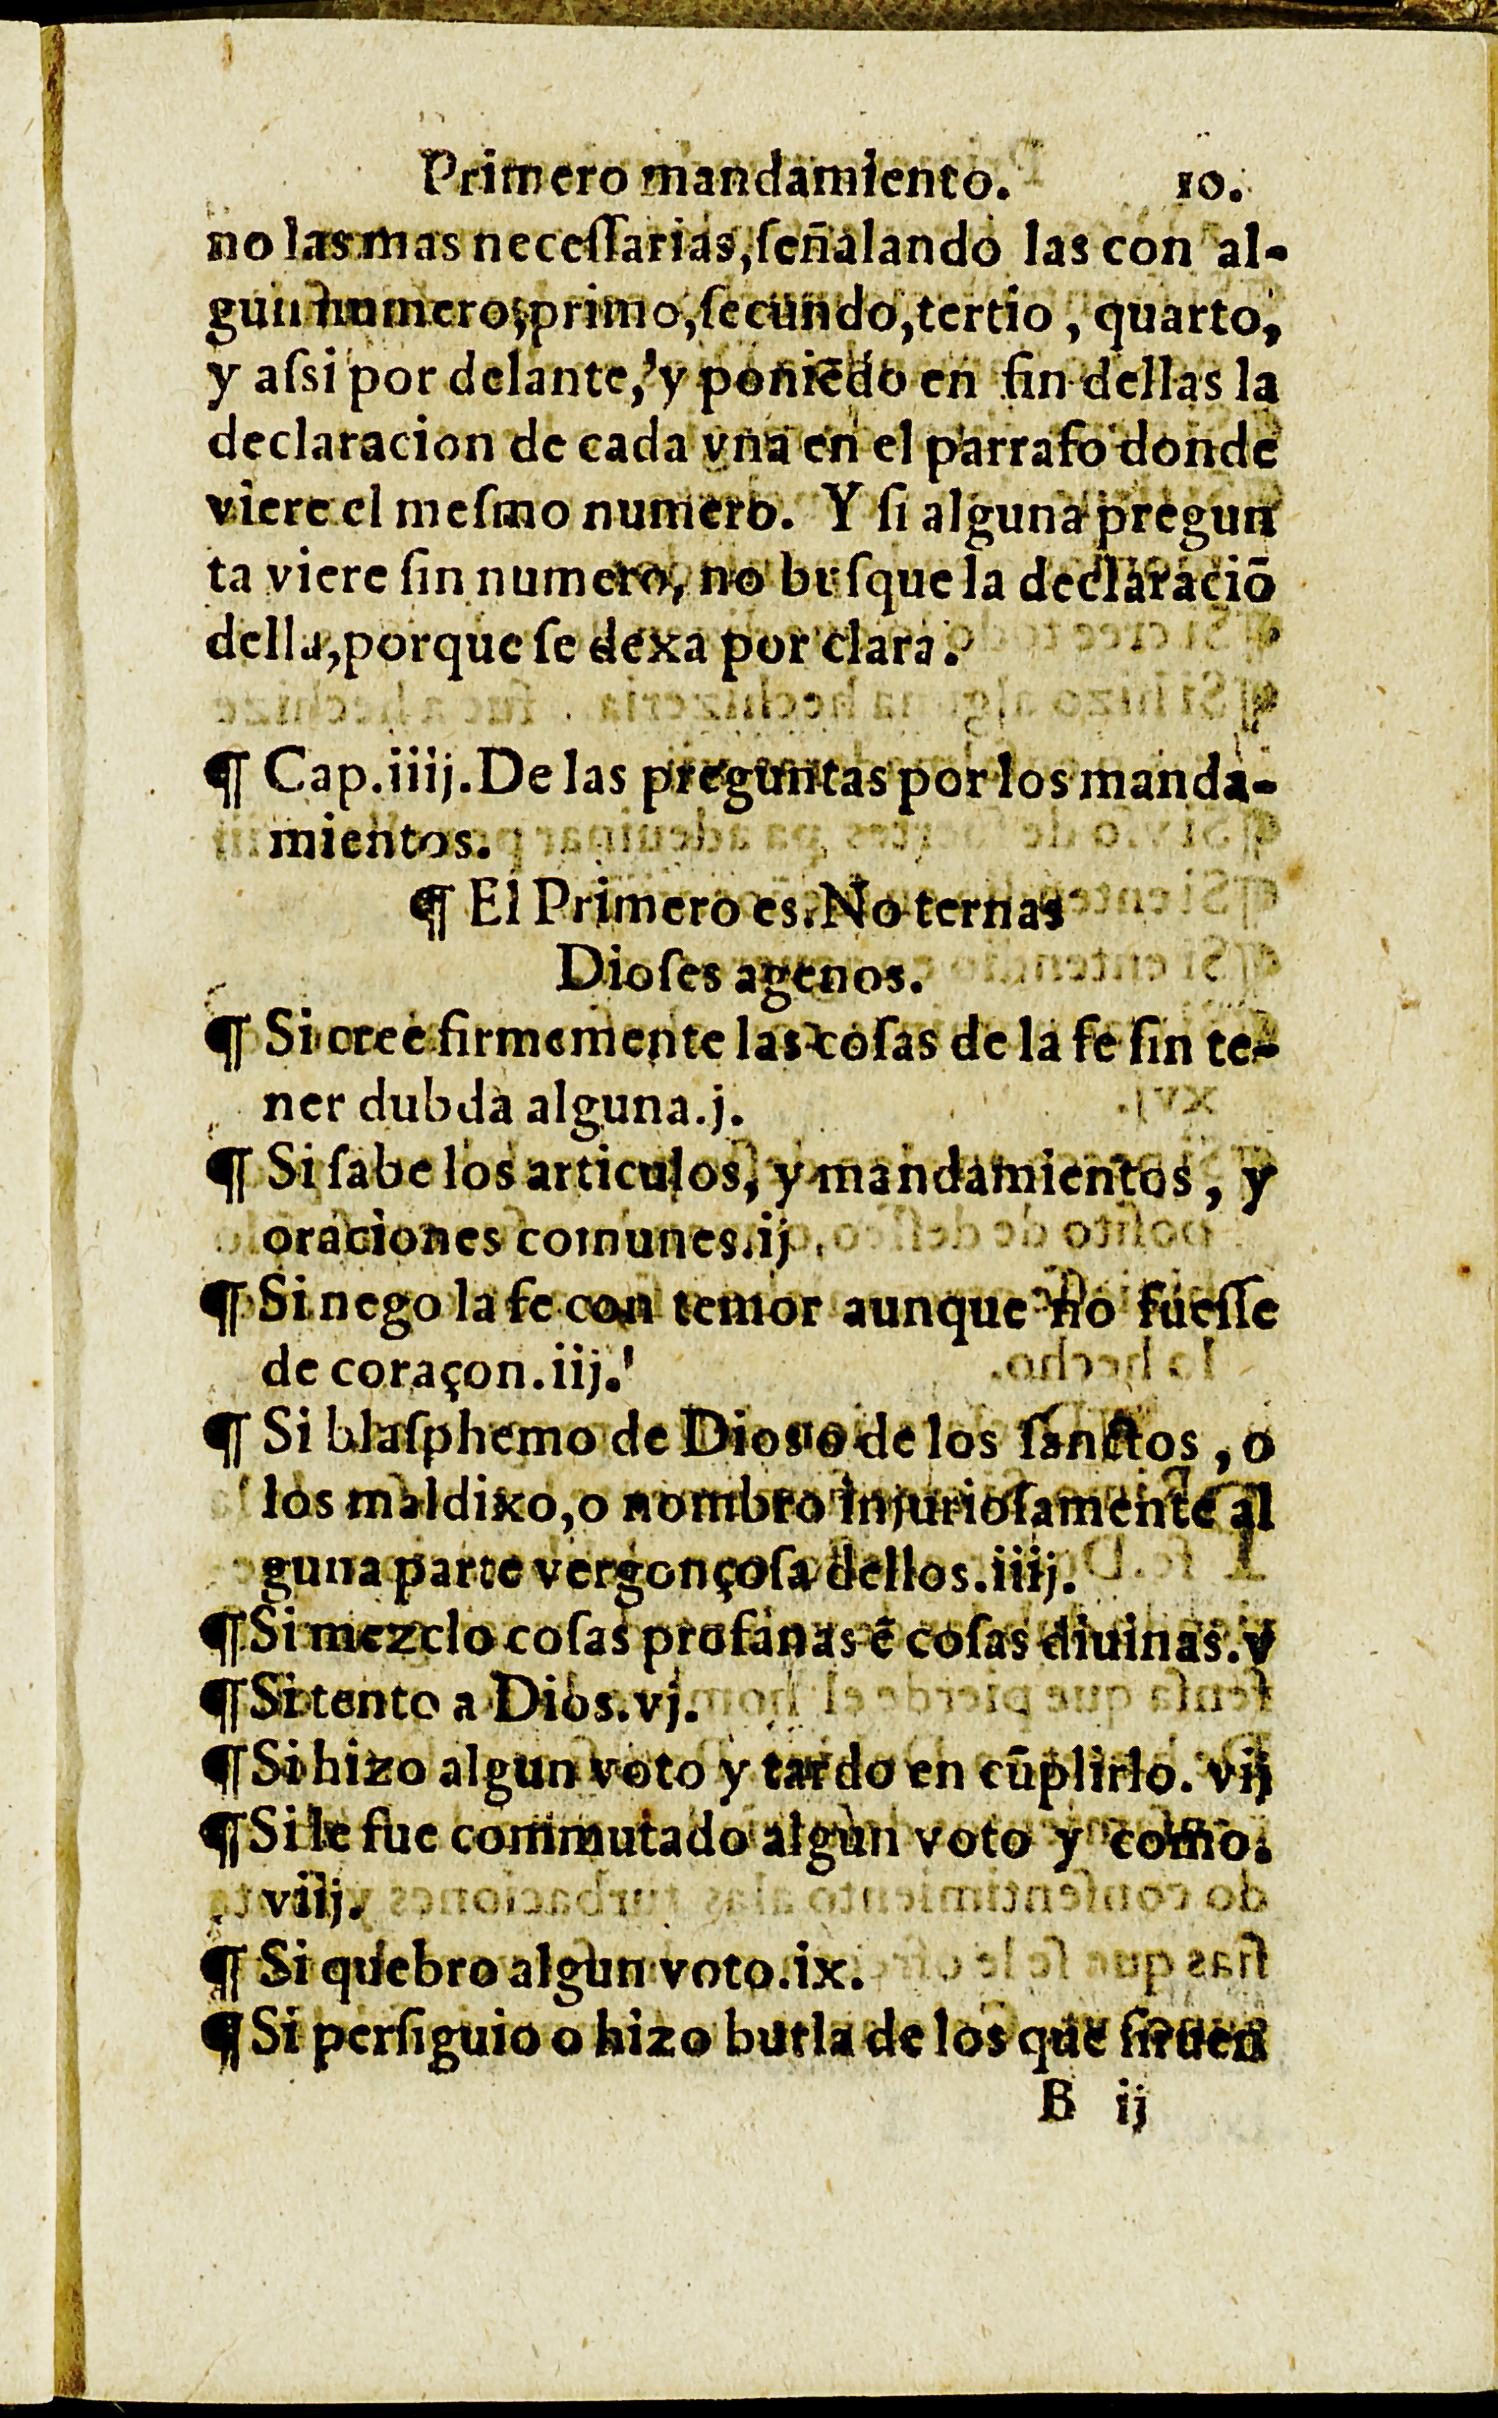 Primero mandamiento. 10.
no las mas neceſſarias, ſeñalando las con al-
gun numero, primo, ſecundo, tertio, quarto,
y aſsi por delante, y poniẽdo en fin dellas la
declaracion de cada vna en el parrafo donde
viere el meſmo numero. Y ſi alguna pregun
ta viere ſin numero, no buſque la declaraciõ
della, porque ſe dexa por clara.
¶ Cap.iiij. De las preguntas por los manda-
mientos.
¶ El Primero es. No ternas
Dioſes agenos.
¶ Si cree firmemente las coſas de la fe ſin te-
ner dubda alguna.j.
¶ Si ſabe los articulos, y mandamientos, y
oraciones comunes.ij
¶ Si nego la fe con temor aunque no fueſſe
de coraçon.iij.
¶ Si blaſphemo de Dios o de los ſanctos, o
los maldixo, o nombro injurioſamente al
guna parte vergonçoſa dellos.iiij.
¶ Si mezclo coſas profanas ẽ coſas diuinas.v
¶ Si tento a Dios.vj.
¶ Si hizo algun voto y tardo en cũplirlo. vij
¶ Si le fue commutado algun voto y como.
viij.
¶ Si quebro algun voto.ix.
¶ Si perſiguio o hizo burla de los que ſiruen
B ij